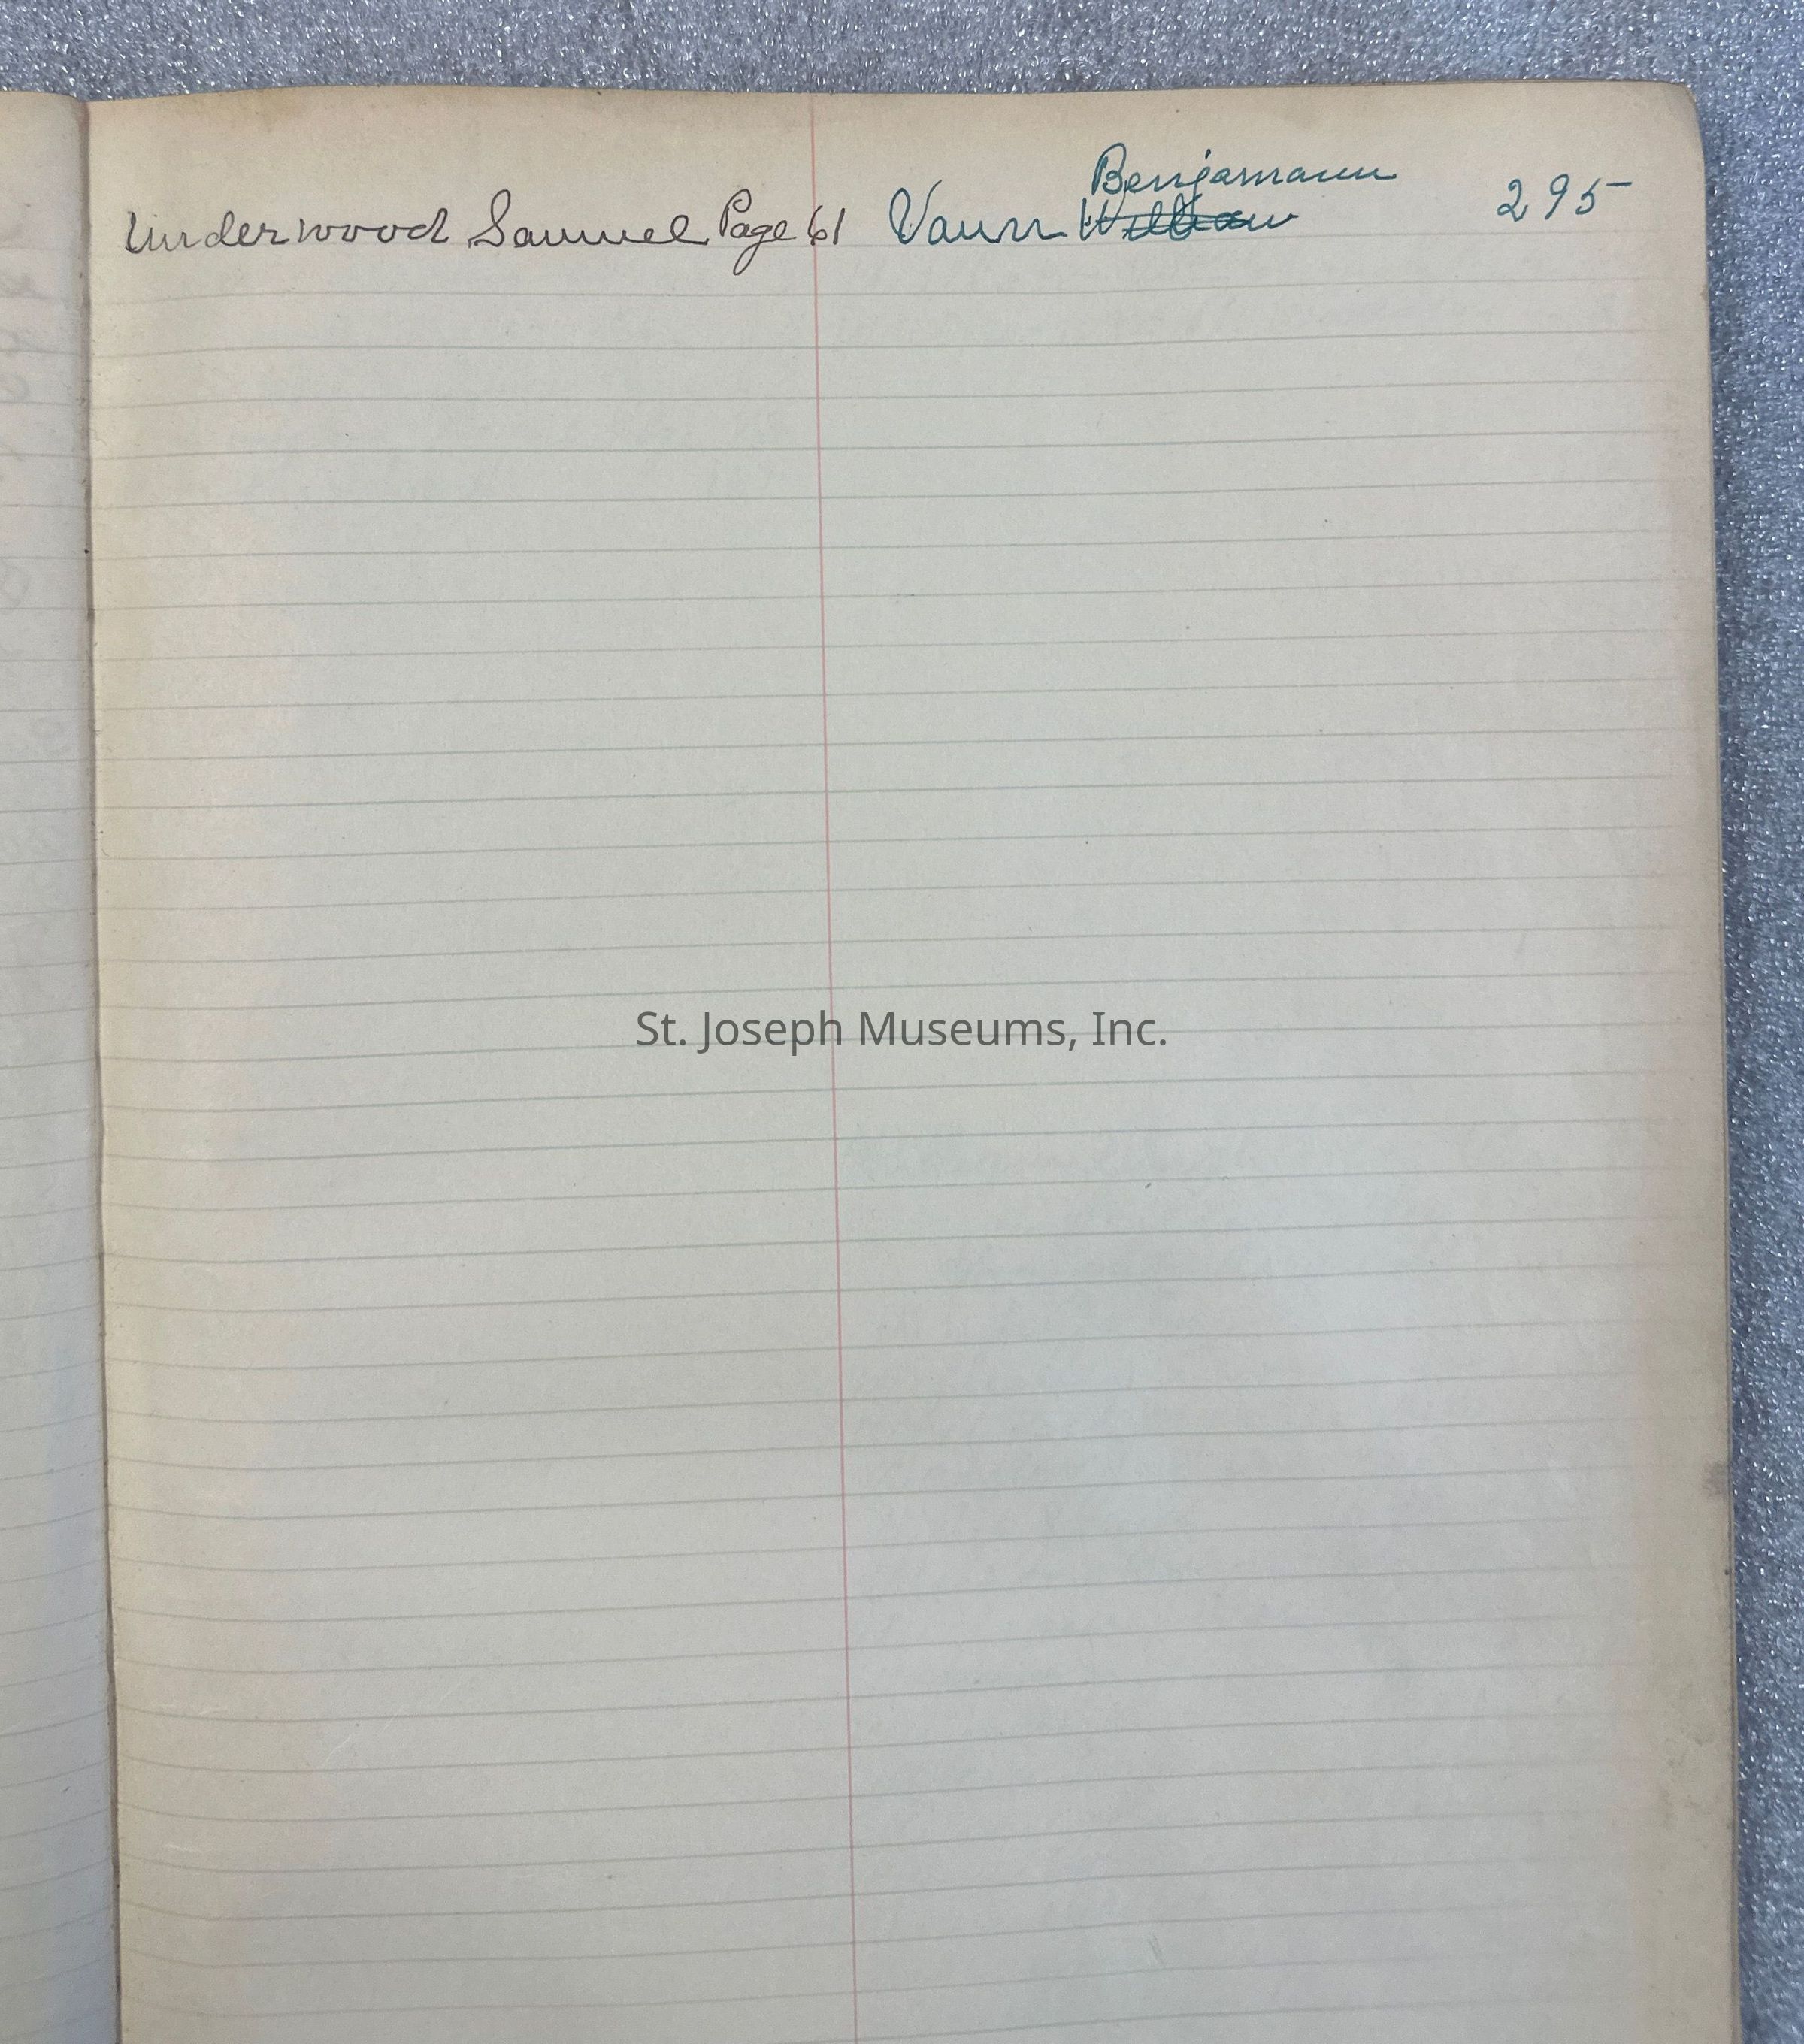 Benjamann
Underwood Samuel Page 61 Vann William 295
St. Joseph Museums, Inc.